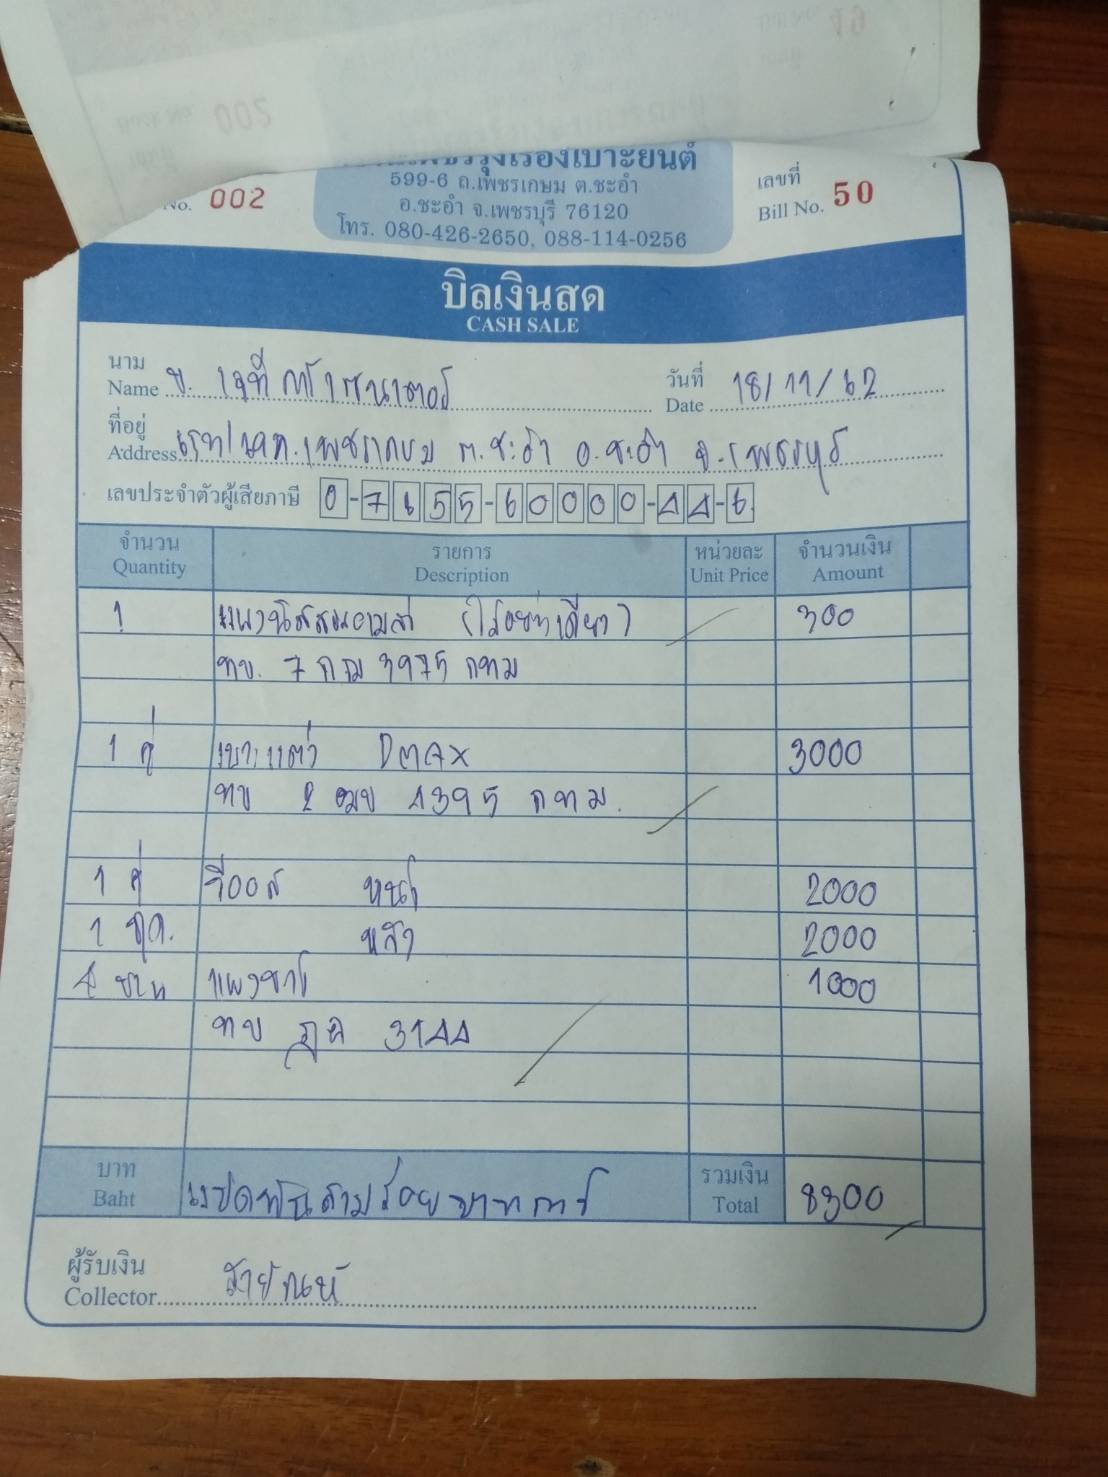 No. 002
รุ่งเรืองเบาะยนต์
599-6 ถ.เพชรเกษม ต.ชะอำ
อ.ชะอำ จ.เพชรบุรี 76120
โทร. 080-426-2650, 088-114-0256
เลขที่
Bill No. 50
บิลเงินสด
CASH SALE
นาม
Name บ. เจที
วันที่
Date 18/11/62
ที่อยู่
Address ถ.เพชรเกษม ต.ชะอำ อ.ชะอำ จ.เพชรบุรี
เลขประจำตัวผู้เสียภาษี 0-7655-60000-44-6
จำนวน รายการ หน่วยละ จำนวนเงิน
Quantity Description Unit Price Amount
1 300
ทบ. 7 กฌ 3975 กทม
1 คู่ เบาะแต่ง DMAX 3000
ทบ 2 ฒข 4395 กทม.
1 คู่ วีออส หน้า 2000
1 ชุด. หลัง 2000
4 บาน แผงข้าง 1000
ทบ 3144
บาท
Baht แปดพันสามร้อยบาท
รวมเงิน
Total 8300
ผู้รับเงิน
Collector สายัณห์